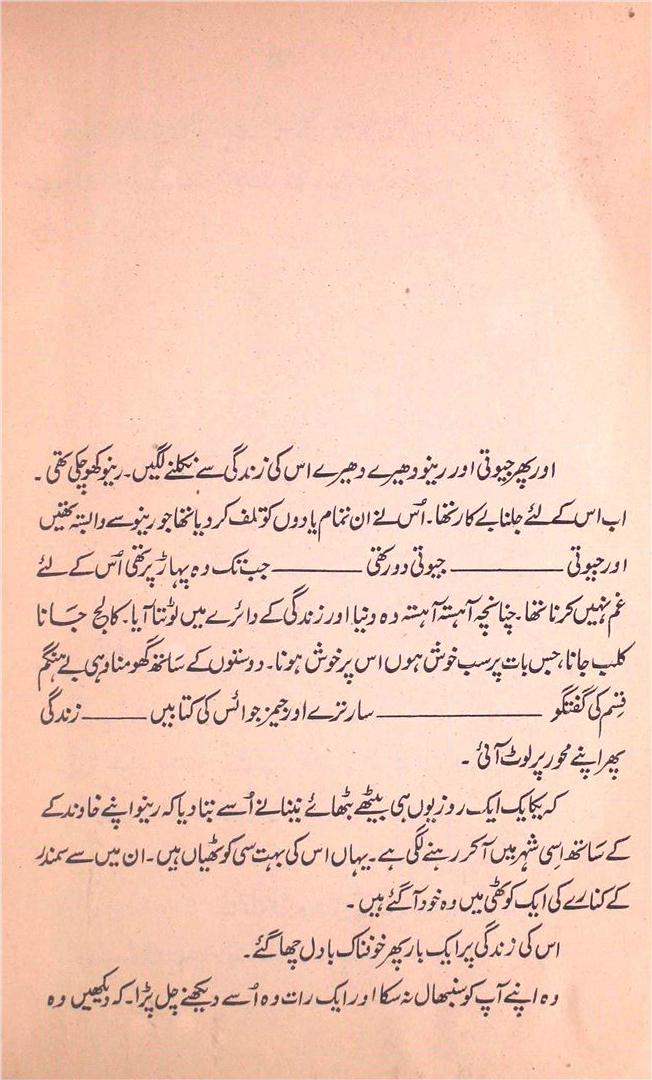 اور پھر جیوتی اور رینو دھیرے دھیرے اس کی زندگی سے نکلنے لگیں۔ رینو کھو چکی تھی۔
اب اس کے لئے جلنا بے کار تھا۔ اُس نے ان تمام یادوں کو تلف کر دیا تھا جو رینو سے وابستہ تھیں
اور جیوتی ــــــــــــ جیوتی دور تھی ــــــــــــ جب تک وہ پہاڑ پر تھی اُس کے لئے
غم نہیں کرنا تھا۔ چنانچہ آہستہ آہستہ وہ دنیا اور زندگی کے دائرے میں لوٹتا آیا۔ کالج جانا
کلب جانا، جس بات پر سب خوش ہوں اس پر خوش ہونا۔ دوستوں کے ساتھ گھومنا وہی بے ہنگم
قسم کی گفتگو ــــــــــــ سارترے اور جیمز جوائس کی کتابیں ــــــــــــ زندگی
پھر اپنے محور پر لوٹ آئی۔
کہ یکایک ایک روز یوں ہی بیٹھے بٹھائے نینا نے اُسے بتا دیا کہ رینو اپنے خاوند کے
کے ساتھ اِسی شہر میں آ کر رہنے لگی ہے۔ یہاں اس کی بہت سی کوٹھیاں ہیں۔ ان میں سے سمندر
کے کنارے کی ایک کوٹھی میں وہ خود آ گئے ہیں۔
اس کی زندگی پر ایک بار پھر خوفناک بادل چھا گئے۔
وہ اپنے آپ کو سنبھال نہ سکا اور ایک رات وہ اُسے دیکھنے چل پڑا۔ کہ دیکھیں وہ